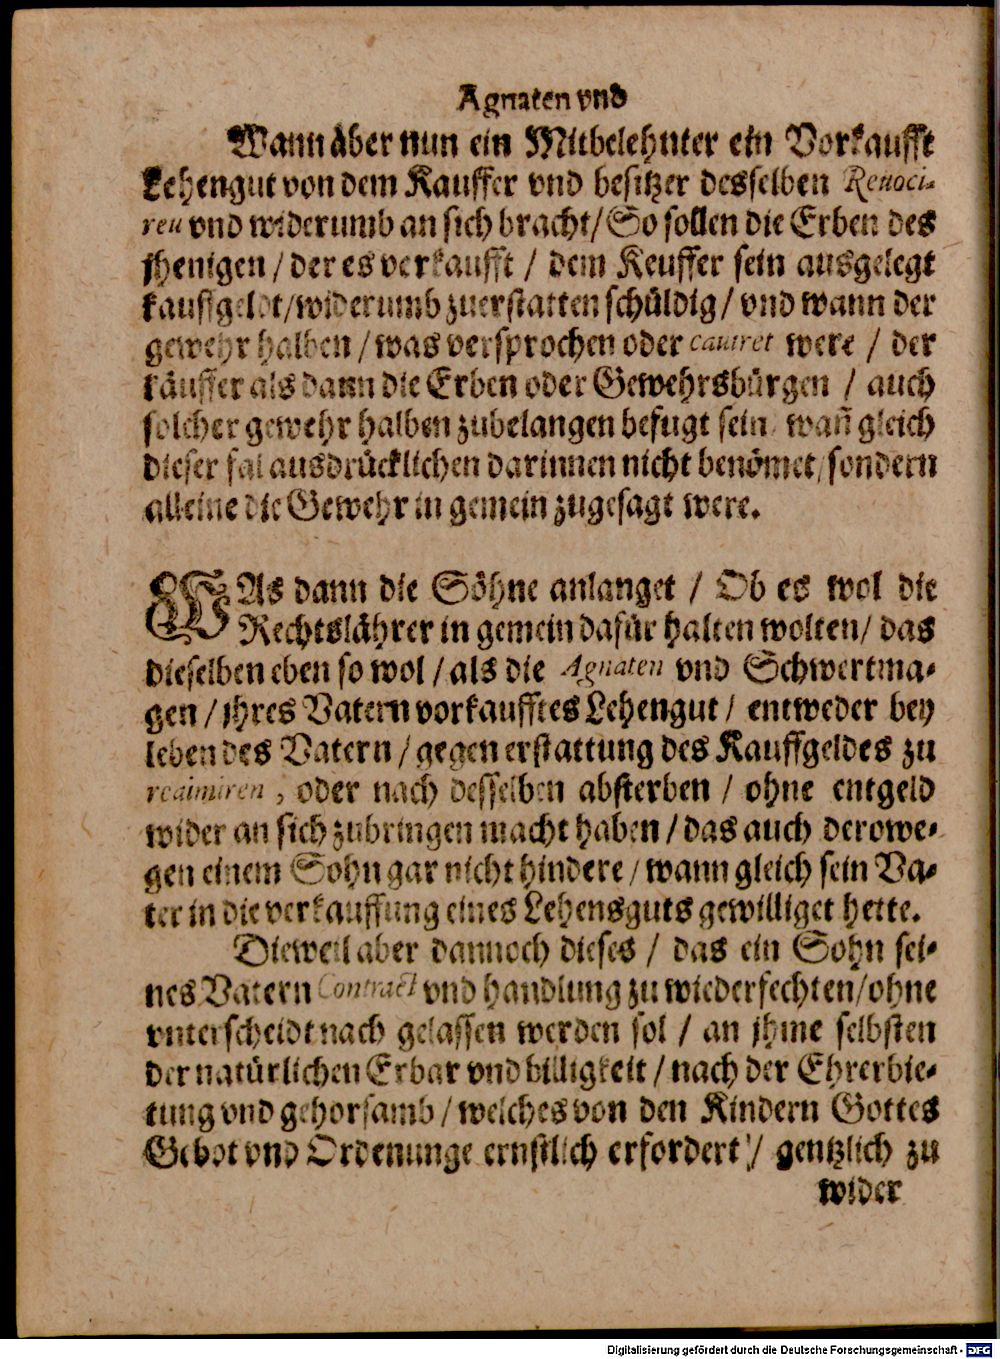 Agnaten vnd
Wann aber nun ein Mitbelehnter ein Vorkaufft
Lehengut von dem Kauffer vnd besitzer desselben Reuoci-
ren vnd widerumb an sich bracht/ So sollen die Erben des
jhenigen / der es verkaufft / dem Keuffer sein ausgelegt
kauffgeldt/widerumb zuerstatten schüldig / vnd wann der
gewehr halben / was versprochen oder cauiret were / der
käuffer als dann die Erben oder Gewehrsbürgen / auch
solcher gewehr halben zubelangen befugt sein, wañ gleich
dieser fal ausdrücklichen darinnen nicht benömet, sondern
alleine die Gewehr in gemein zugesagt were.
WAs dann die Söhne anlanget / Ob es wol die
Rechtslährer in gemein dafür halten wolten/ das
dieselben eben so wol / als die Agnaten vnd Schwertma-
gen / jhres Vatern vorkaufftes Lehengut / entweder bey
leben des Vatern / gegen erstattung des Kauffgeldes zu
redimiren, oder nach desselben absterben / ohne entgeld
wider an sich zubringen macht haben / das auch derowe-
gen einem Sohn gar nicht hindere / wann gleich sein Va-
ter in die verkauffung eines Lehensguts gewilliget hette.
Dieweil aber dannoch dieses / das ein Sohn sei-
nes Vatern Contract vnd handlung zu wiederfechten/ohne
vnterscheidt nach gelassen werden sol / an jhme selbsten
der natürlichen Erbar vnd billigkeit / nach der Ehrerbie-
tung vnd gehorsamb / welches von den Kindern Gottes
Gebot vnd Ordenunge ernstlich erfordert / gentzlich zu
wider
Digitalisierung gefördert durch die Deutsche Forschungsgemeinschaft - DFG